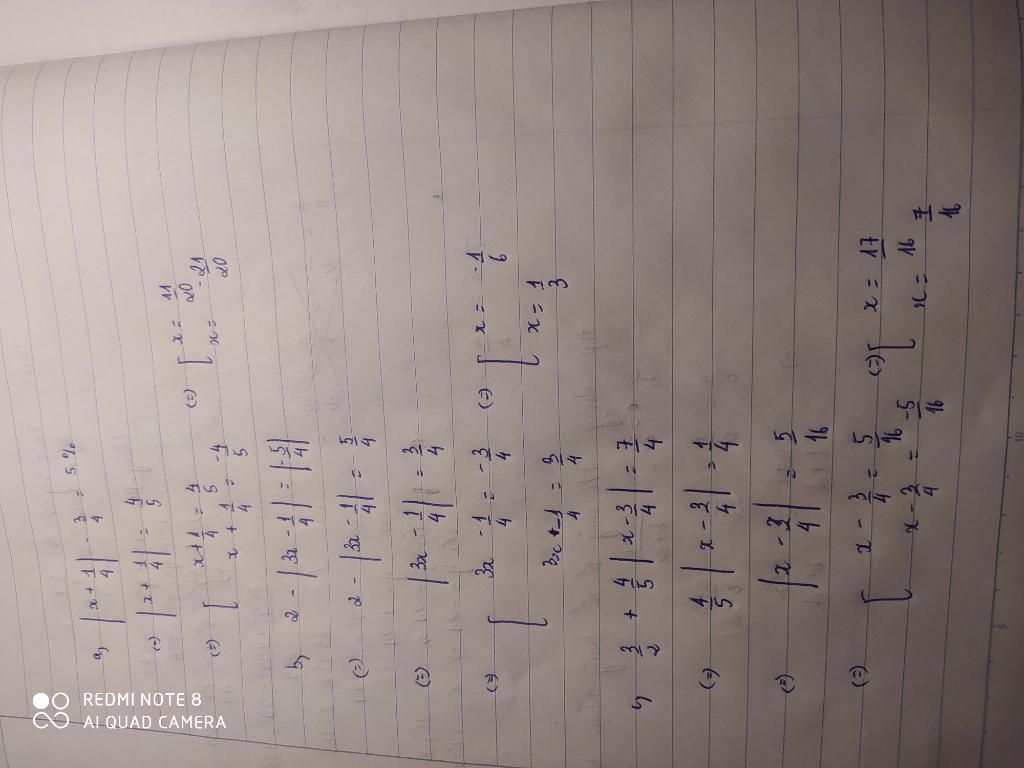 a, |x + 1/4| - 3/4 = 5%
(=) |x + 1/4| = 4/5
(=) [ x + 1/4 = 4/5
x + 1/4 = -4/5
(=) [ x = 11/20
x = -21/20
b, 2 - |3x - 1/4| = |-5/4|
(=) 2 - |3x - 1/4| = 5/4
(=) |3x - 1/4| = 3/4
(=) [ 3x - 1/4 = -3/4
3x + -1/4 = 3/4
(=) [ x = -1/6
x = 1/3
3/2 + 4/5 |x - 3/4| = 7/4
(=) 4/5 |x - 3/4| = 1/4
(=) |x - 3/4| = 5/16
(=) [ x - 3/4 = 5/16
x - 3/4 = -5/16
(=) [ x = 17/16
x = 7/16
REDMI NOTE 8
AI QUAD CAMERA